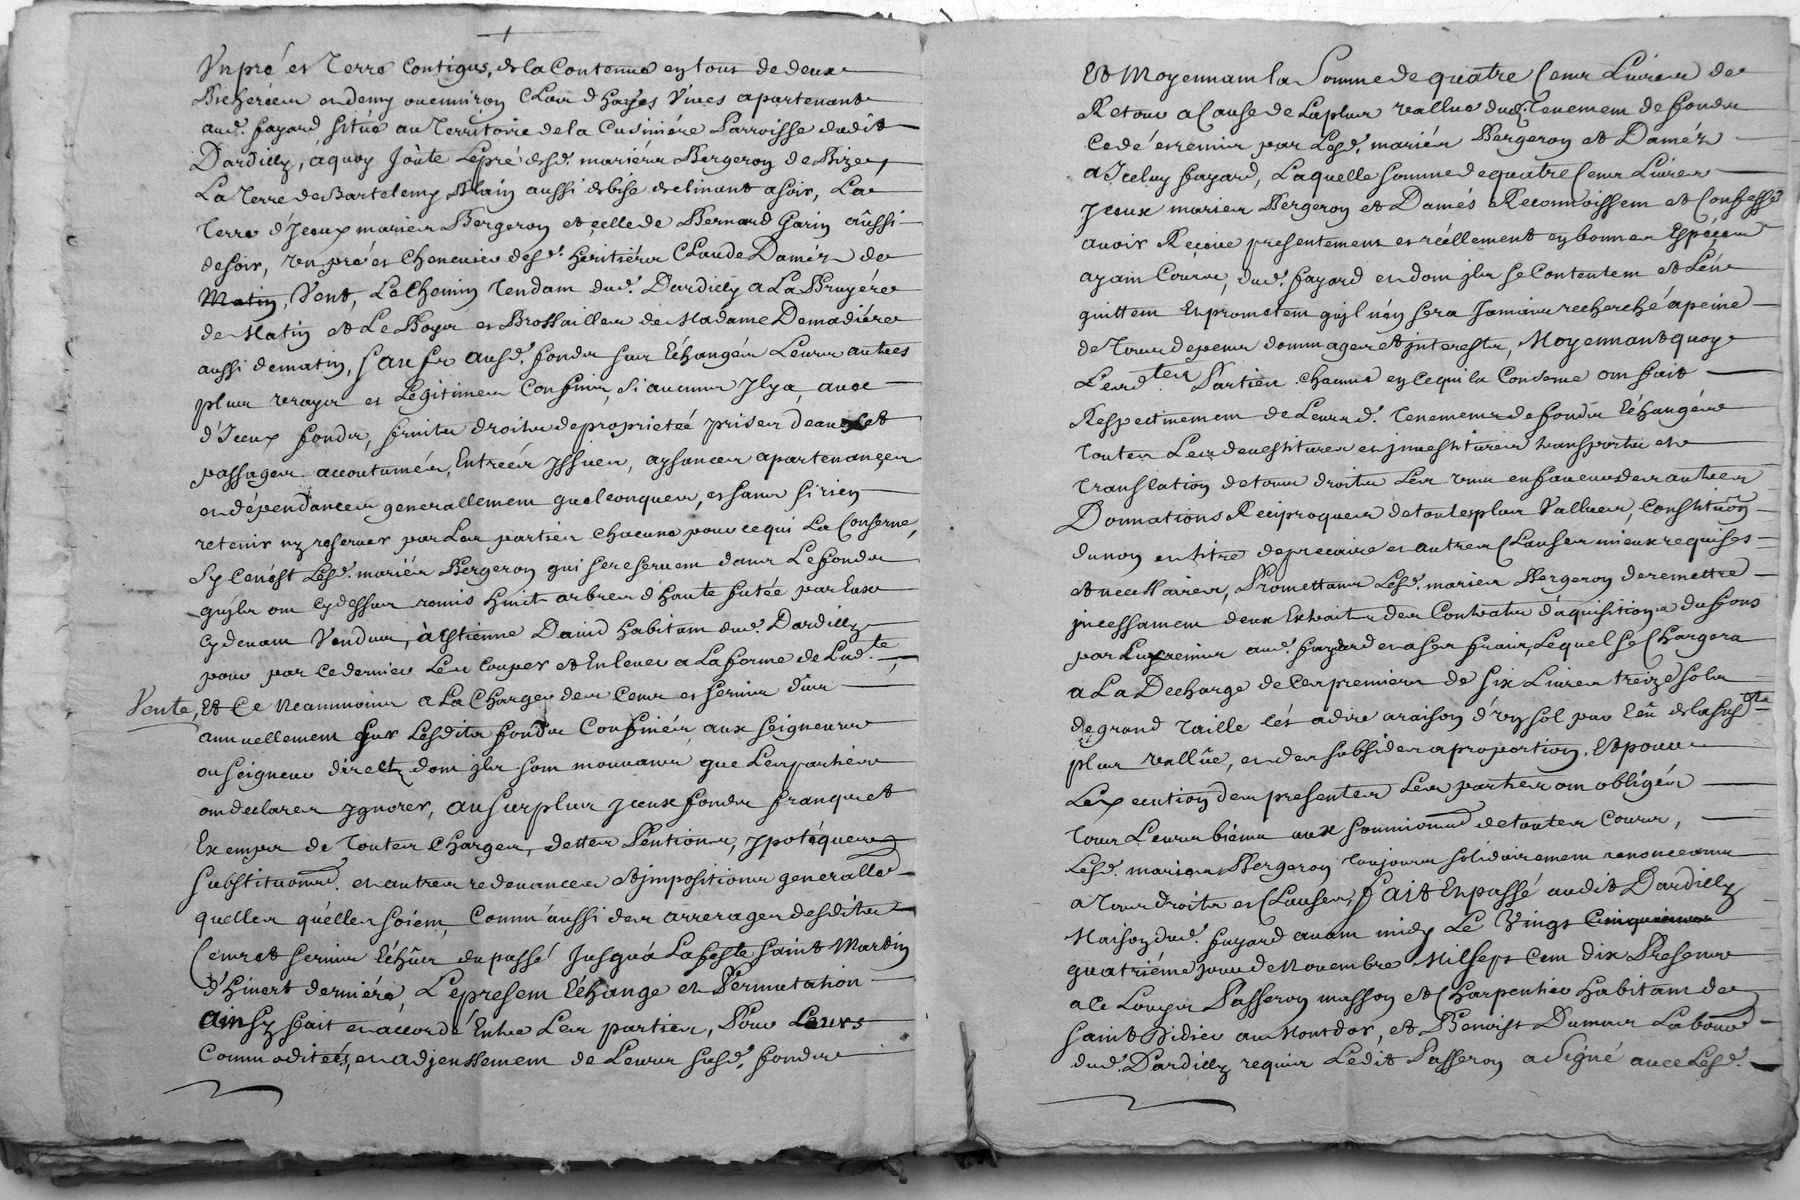 Un pré et Terre Contigus, de la Contenue en tout de deux
Bicherées et demy ou environ Clos d'hayes Vives apartenant
aud. fayard situé au Territoire de la Cusiniére Parroisse dudit
Dardilly, à quoy joûte Le pré desd. mariéz Bergeron de Bize,
La Terre de Bartelemy Blain aussi de bise declinant a soir, La
Terre d'Jceux mariez Bergeron et celle de Bernard Garin aûssi
de soir, Un pré et Cheneviere desd. héritiérs Claude Daméz de
Matin, Vent, Le Chemin Tendam dud. Dardilly a La Bruyére
de Matin et Le Boys et Brossailles de Madame Demadiére
aussi de matin, sauf aus. fonds sus Échangés Leurs autres
plus vrays et Légitimes Confins, si aucuns Jl y a, avec
d'Jceux fonds, fruits droits de proprietéé prises d'eaux et
passages accoutumés, Entrées Jssues, aysances apartenances
et dépendances generallement quelconques, et sans si rien
retenir ny reserver par Les parties chacune pour ce qui La Conserne,
Sy Cen'est Lesd. mariés Bergeron qui se reservent dans Le fonds
qu'jls ont cy dessus remis huit arbres d'haute futée par Eux
cy devant Vendus, à Estienne David habitam dud. Dardilly
pour par Ce dernier Les Couper et Enlever a La forme de Lad.te
Vente, Et Ce Neanmoins a La Charge des Cens et servis dûs
annuellement sur Lesdits fonds Confinés aux seigneurs
ou seigneur direct, dont jls sont mouvans que Les parties
ont declarés jgnorer, au surplus Jceux fonds franqs et
Exemps de Toutes Charges, dettes Pentions, jpotéques
substitutions. et autres redevances et jmpositions generalles
quelles qu'elles soient, Comm'aussi des arrerages desdits
Cens et servis Échûs du passé Jusqu'à La feste saint Martin
d'hivert derniére, Le presem Échange et Permutation
ainsy fait et accordé Entre Les parties, Pour Leurs
Commoditées, et adjenssement de Leurs susd. fonds
Et Moyennant la Somme de quatre Cent Livres de
Retour a Cause de La plus vallue dud. Tenement de fonds
Cedé et remis par Lesd. mariés Bergeron et Daméz
a Jceluy fayard, Laquelle somme de quatre Cent Livres
Jceux mariés Bergeron et Damés Reconnoissent et Confessent
avoir Reçeue presentement et réellement en bonnes Espéces
ayant Cours, dud. fayard et dont jls se Contentent et L'en
quittent Et promettent qu'jl n'en sera Jamais recherché a peine
de Tous depens dommages et jnterests, Moyennant quoy
Lesd.tes Parties chacune en ce qui la Conserne ont fait
Respectivement de Leursd. Tenements de fonds Échangés
Toutes Les devestitures et jnvestitures transports et
Translation de tous droits Les uns en faveur des autres
Donnations Reciproques de toutes plus Vallues, Constitution
du nom et titre de precaire et autres Clauses mieux requises
et necessaires, Promettants Lesd. mariés Bergeron de remettre
jncessament deux Extraits des Contrats d'aquisitions du fons
par Luy remis aud. fayard et a ses frais, Lequel se Chargera
a La Decharge de Ces premiers de six Livres treize sols
de grand Taille c'ést a dire a raison d'un sol pour Écû de la sus.te
plus vallûe, et des subsides a proportion. Et pour
L'execution des presentes Les parties ont obligés
Tous Leurs biéns aux soumissions de toutes Cours,
Lesd. mariés Bergeron Toujours solidairement renonceants
a Tous droits et Clauses, Fait Et passé audit Dardilly
Maison dud. fayard avant midy Le Vingt Cinquiéme
quatriéme jour de Novembre Mil sept Cent dix Presents
a Ce Louis Passeron masson et Charpentier habitant de
saint Didier au Montdor, et Benoist Dumas Laboureur
dud. Dardilly requis Ledit Passeron a signé avec Lesd.